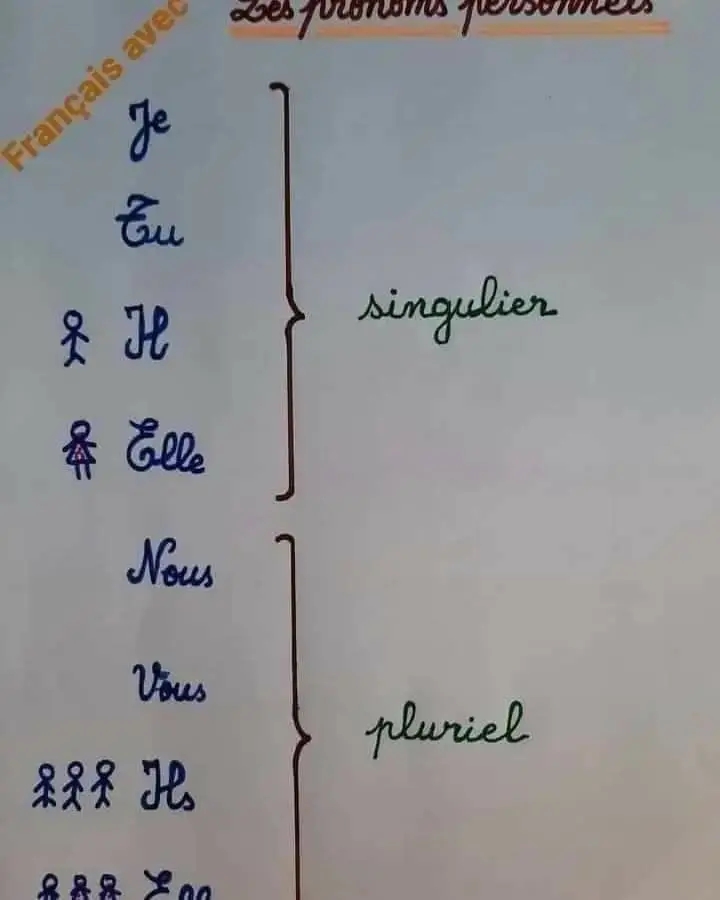 Les pronoms personnels
Français avec
Je
Tu
Il
singulier
Elle
Nous
Vous
pluriel
Ils